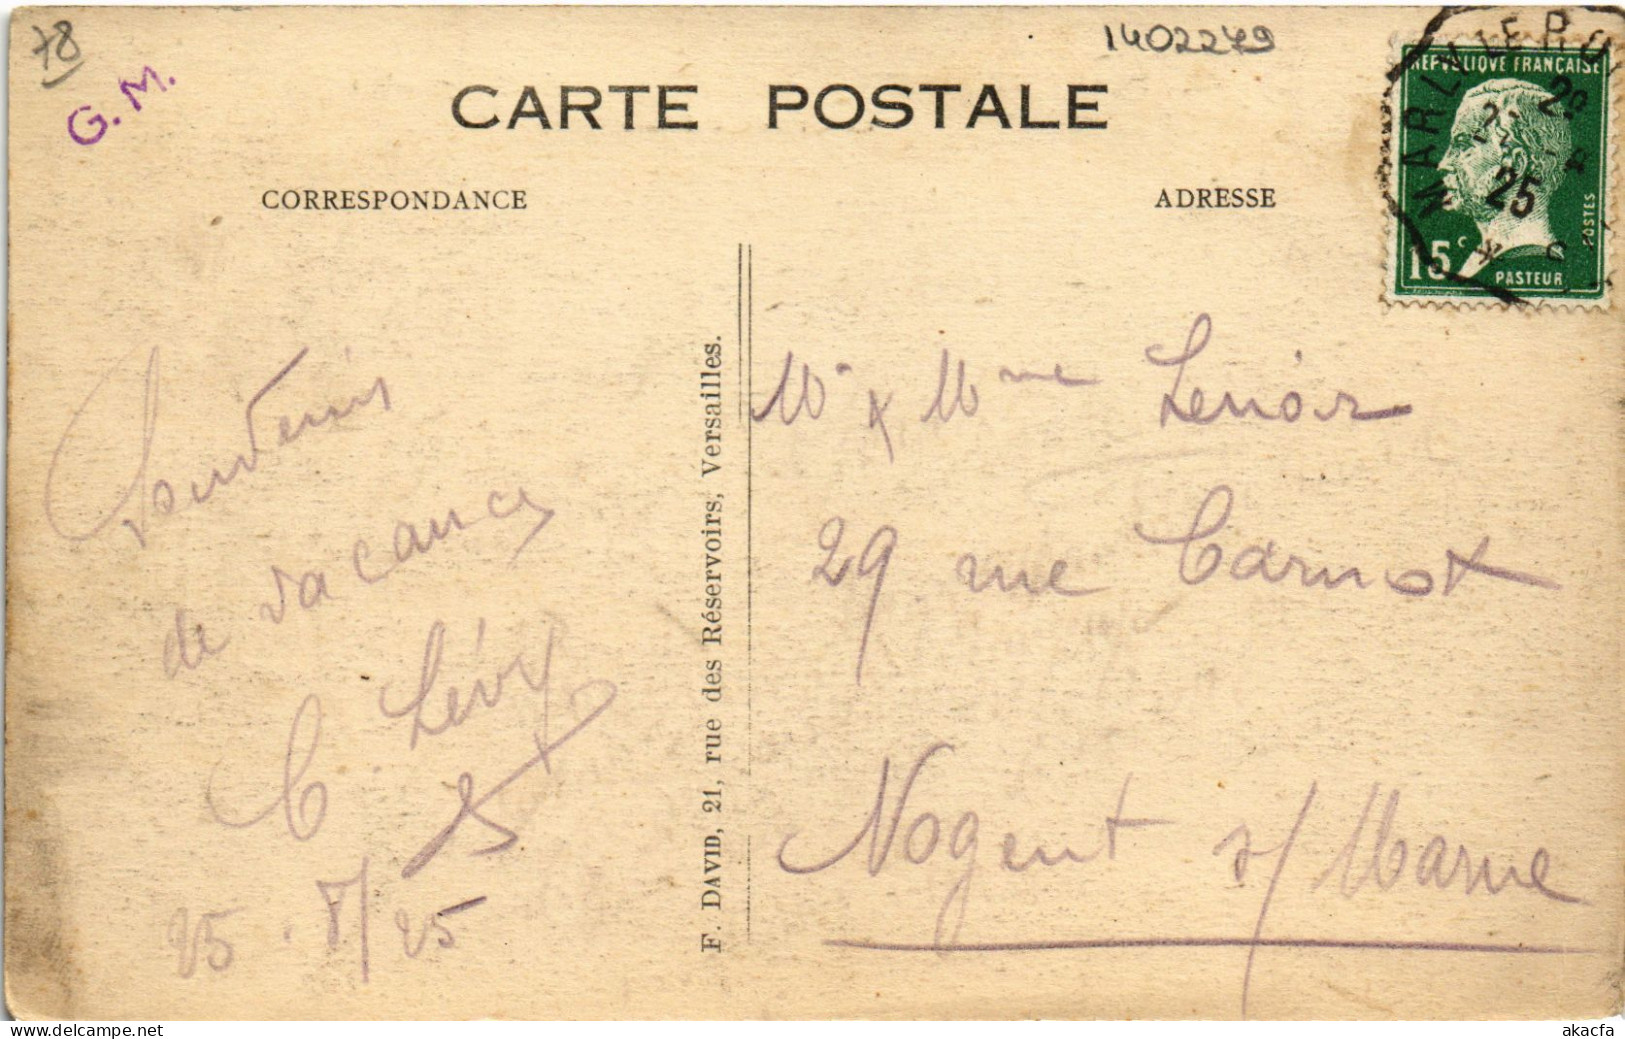 78
G. M.
1402279
CARTE POSTALE
CORRESPONDANCE
ADRESSE
MARLY LE ROI
25
REPUBLIQUE FRANÇAISE
POSTES
15c
PASTEUR
Souvenirs
de vacances
C. Lévy
25.8/25
F. DAVID, 21, rue des Réservoirs, Versailles.
Mr & Mme Lenoir
29 rue Carnot
Nogent s/ Marne
akacfa-delcampe.net
akacfa